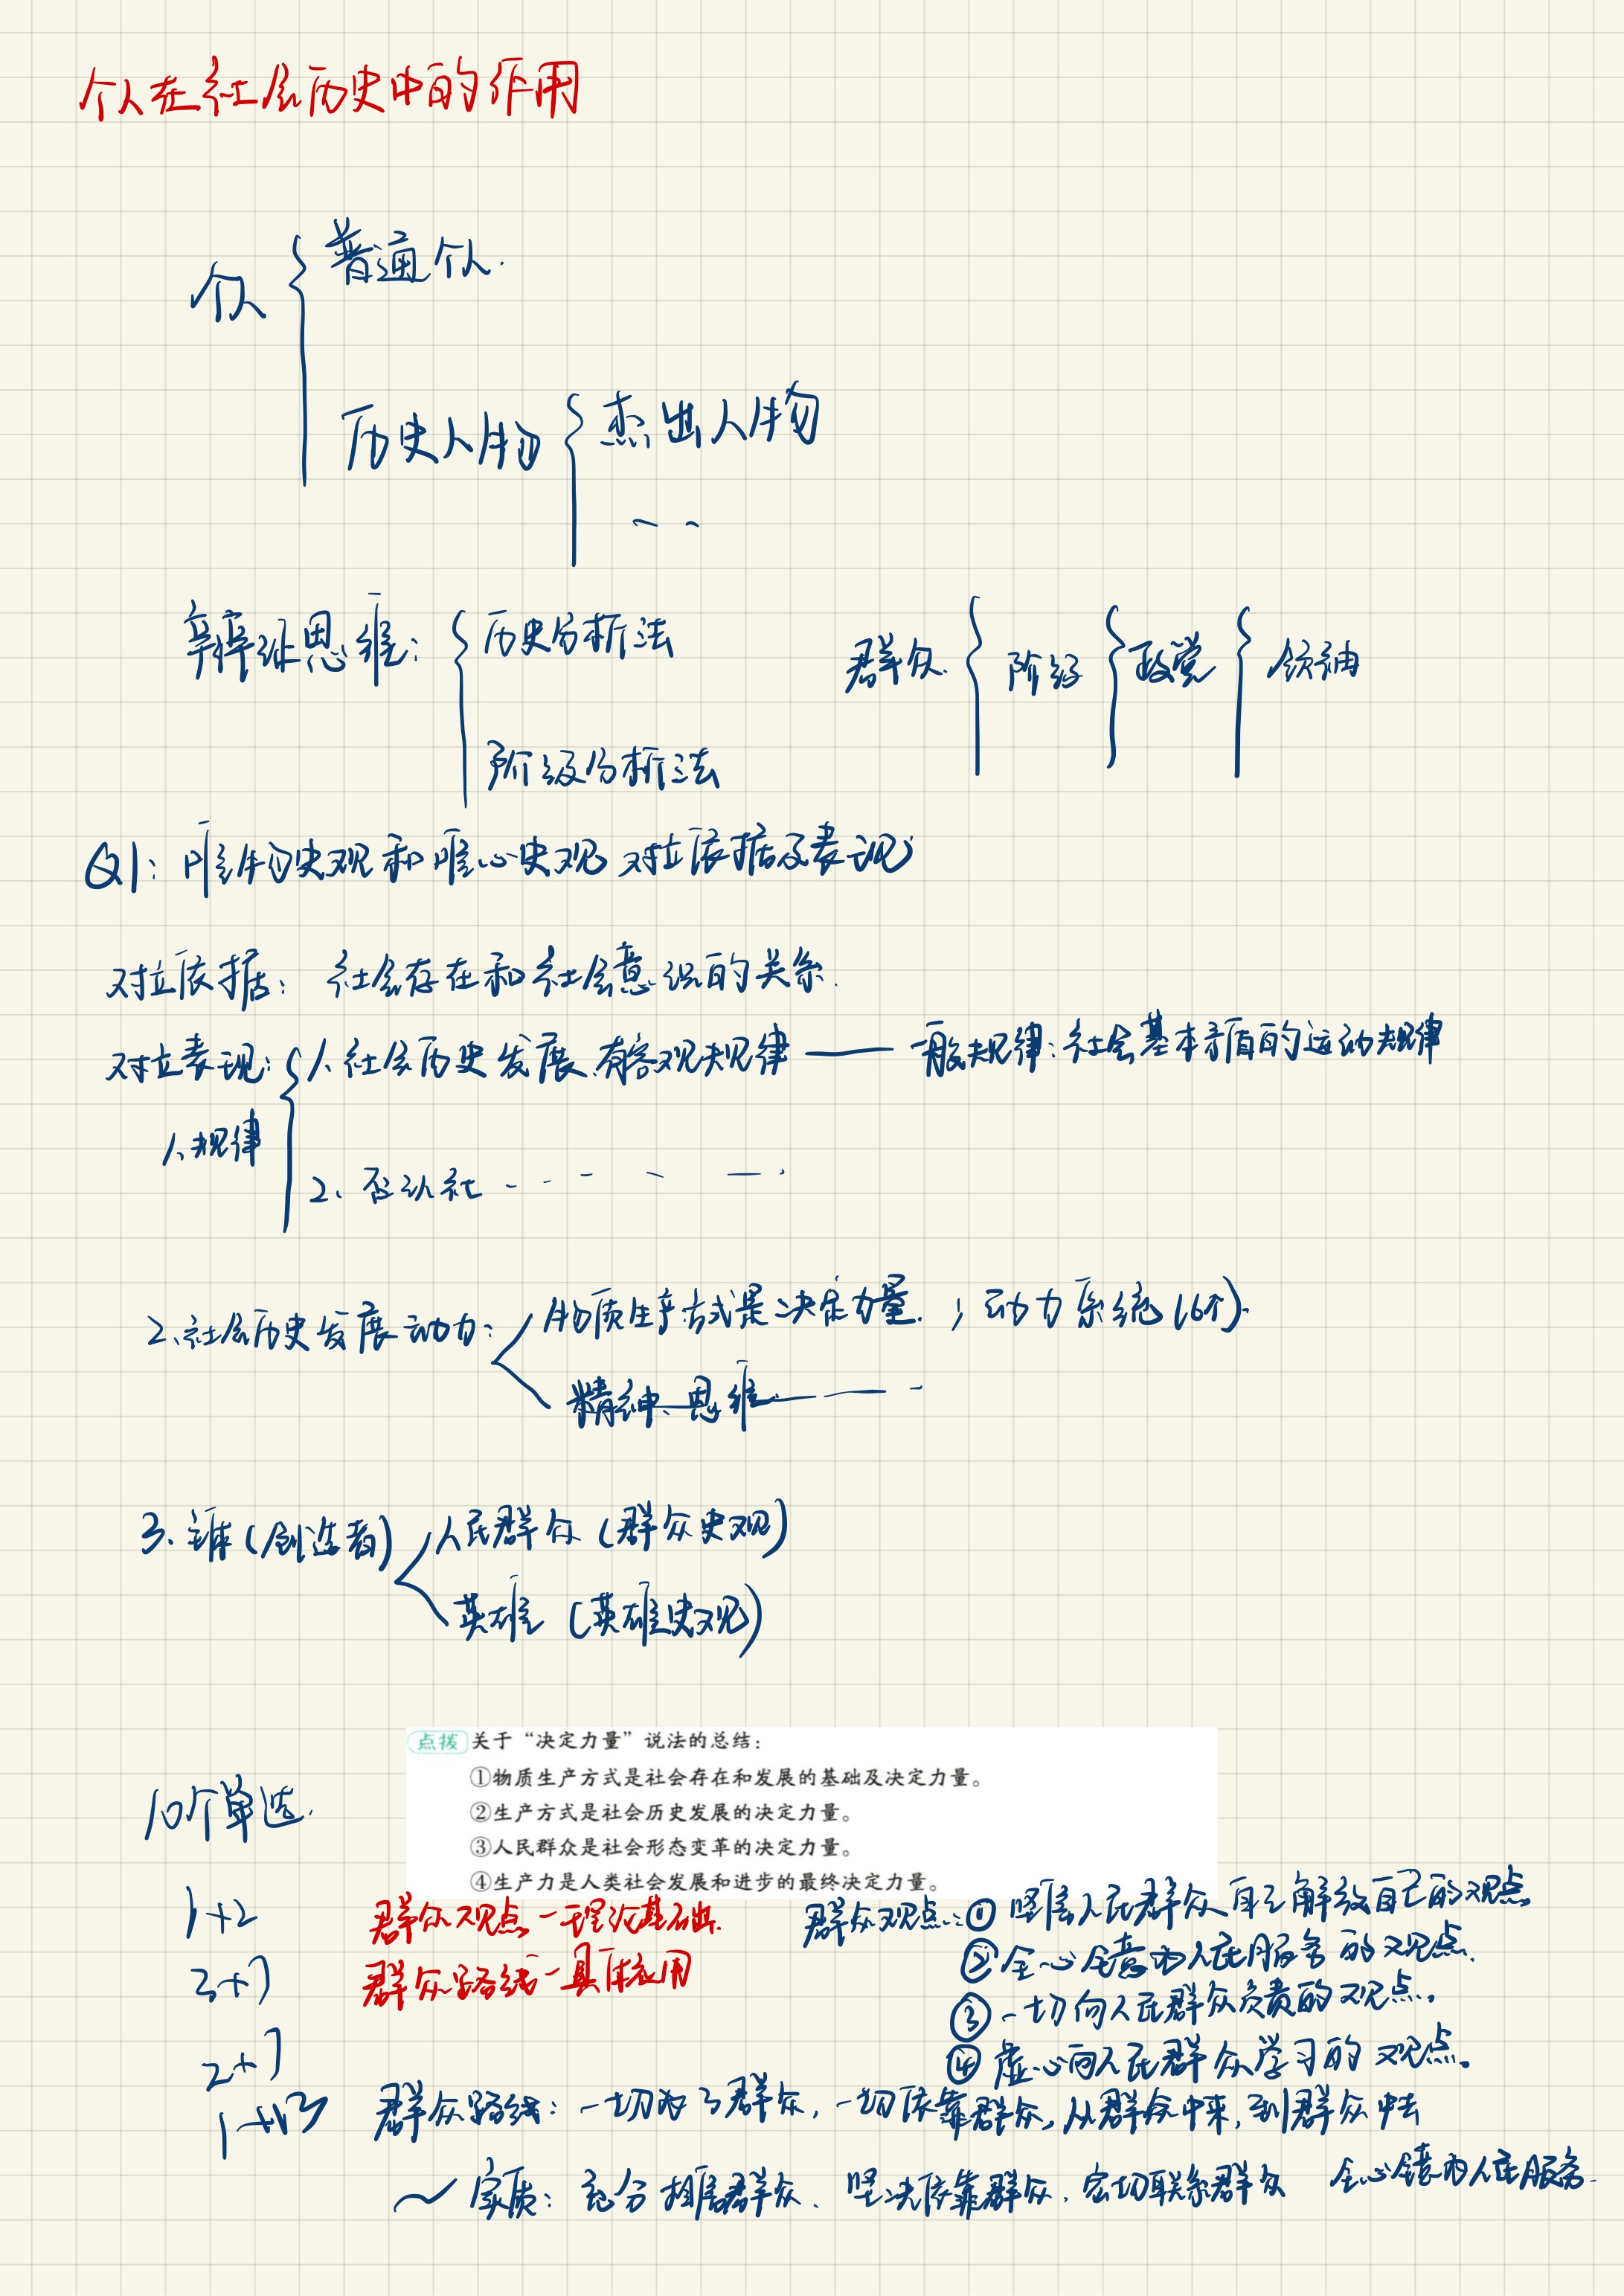 个人在社会历史中的作用
个人
普通个人.
历史人物
杰出人物
辩证思维:
历史分析法
阶级分析法
群众 阶级 政党 领袖
Q1: 唯物史观和唯心史观 对立依据及表现
对立依据: 社会存在和社会意识的关系.
对立表现: 1、社会历史发展有客观规律 —— 一般规律: 社会基本矛盾的运动规律
1、规律
2、否认社
2、社会历史发展动力: 物质生产方式是决定力量. ; 动力系统(6个).
精神、思维
3、主体(创造者) 人民群众(群众史观)
英雄 (英雄史观)
点拨 关于“决定力量”说法的总结:
①物质生产方式是社会存在和发展的基础及决定力量。
②生产方式是社会历史发展的决定力量。
③人民群众是社会形态变革的决定力量。
④生产力是人类社会发展和进步的最终决定力量。
10个单选.
1+2
群众观点—理论基础.
群众路线—具体应用
群众观点: ① 坚信人民群众自己解放自己的观点
② 全心全意为人民服务的观点.
③ 一切向人民群众负责的观点。
④ 虚心向人民群众学习的观点。
群众路线: 一切为了群众, 一切依靠群众, 从群众中来, 到群众中去
~ 实质: 充分相信群众、坚决依靠群众, 密切联系群众 全心全意为人民服务.